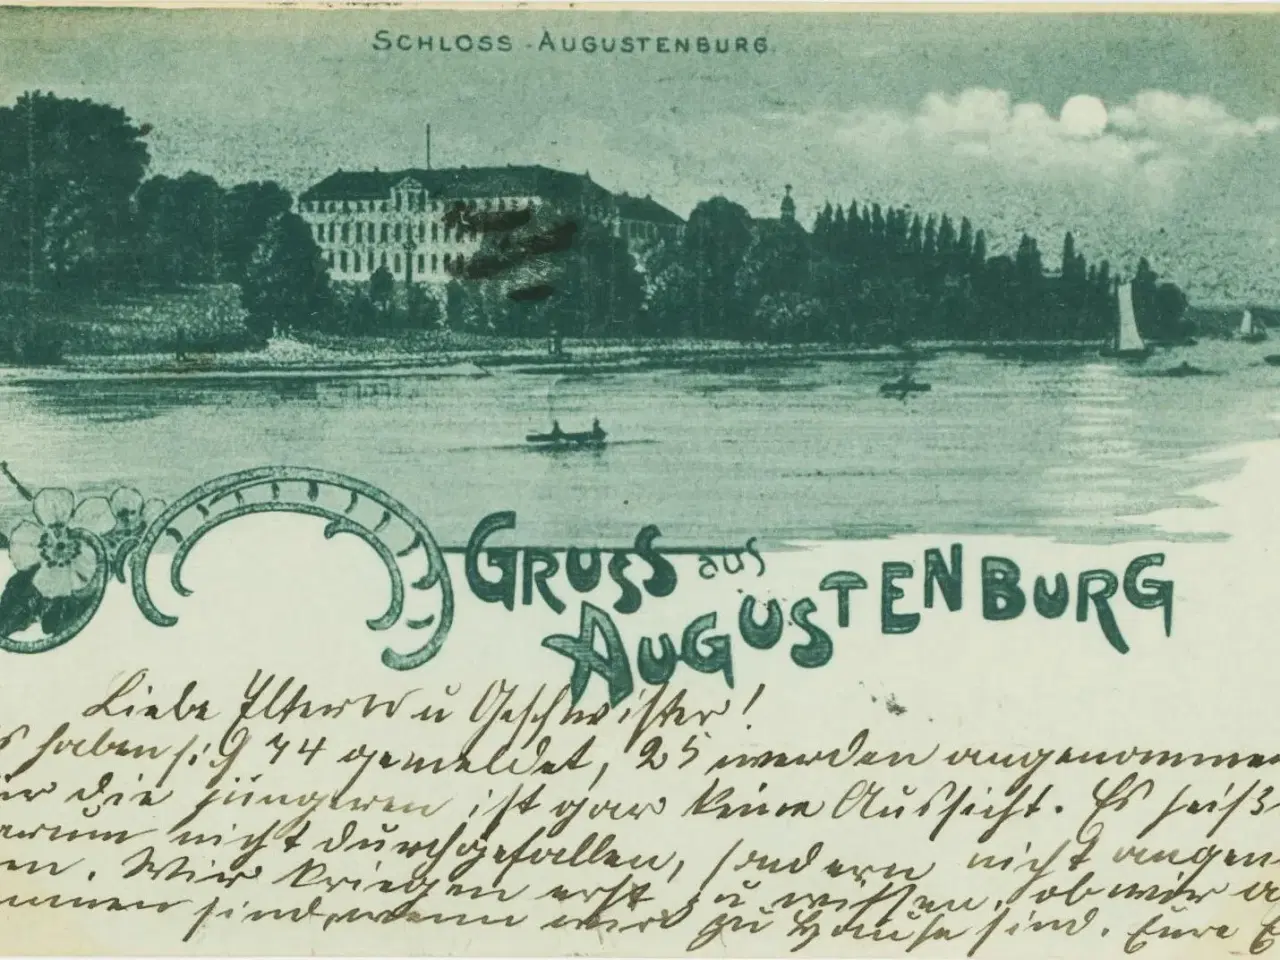 SCHLOSS - AUGUSTENBURG.
GRUSS aus
AUGUSTENBURG
Liebe Eltern u Geschwister!
s haben sich 44 gemeldet, 25 werden angenommen
ür die jüngeren ist gar keine Aussicht. Es heiß
arum nicht durchgefallen, sondern nicht angen
en. Wir kriegen erst zu wissen, ob wir a
mmen sind, wenn wir zu Hause sind. Eure E